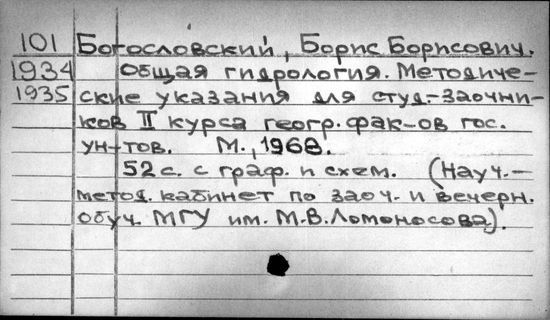 101 Богословский, Борис Борисович.
1934 Общая гидрология. Методиче-
1935 ские указания для студ.-заочни-
ков II курса геогр. фак-ов гос.
ун-тов. М., 1968.
52 с. с граф. и схем. (Науч.-
метод. кабинет по заоч. и вечерн.
обуч. МГУ им. М.В.Ломоносова).